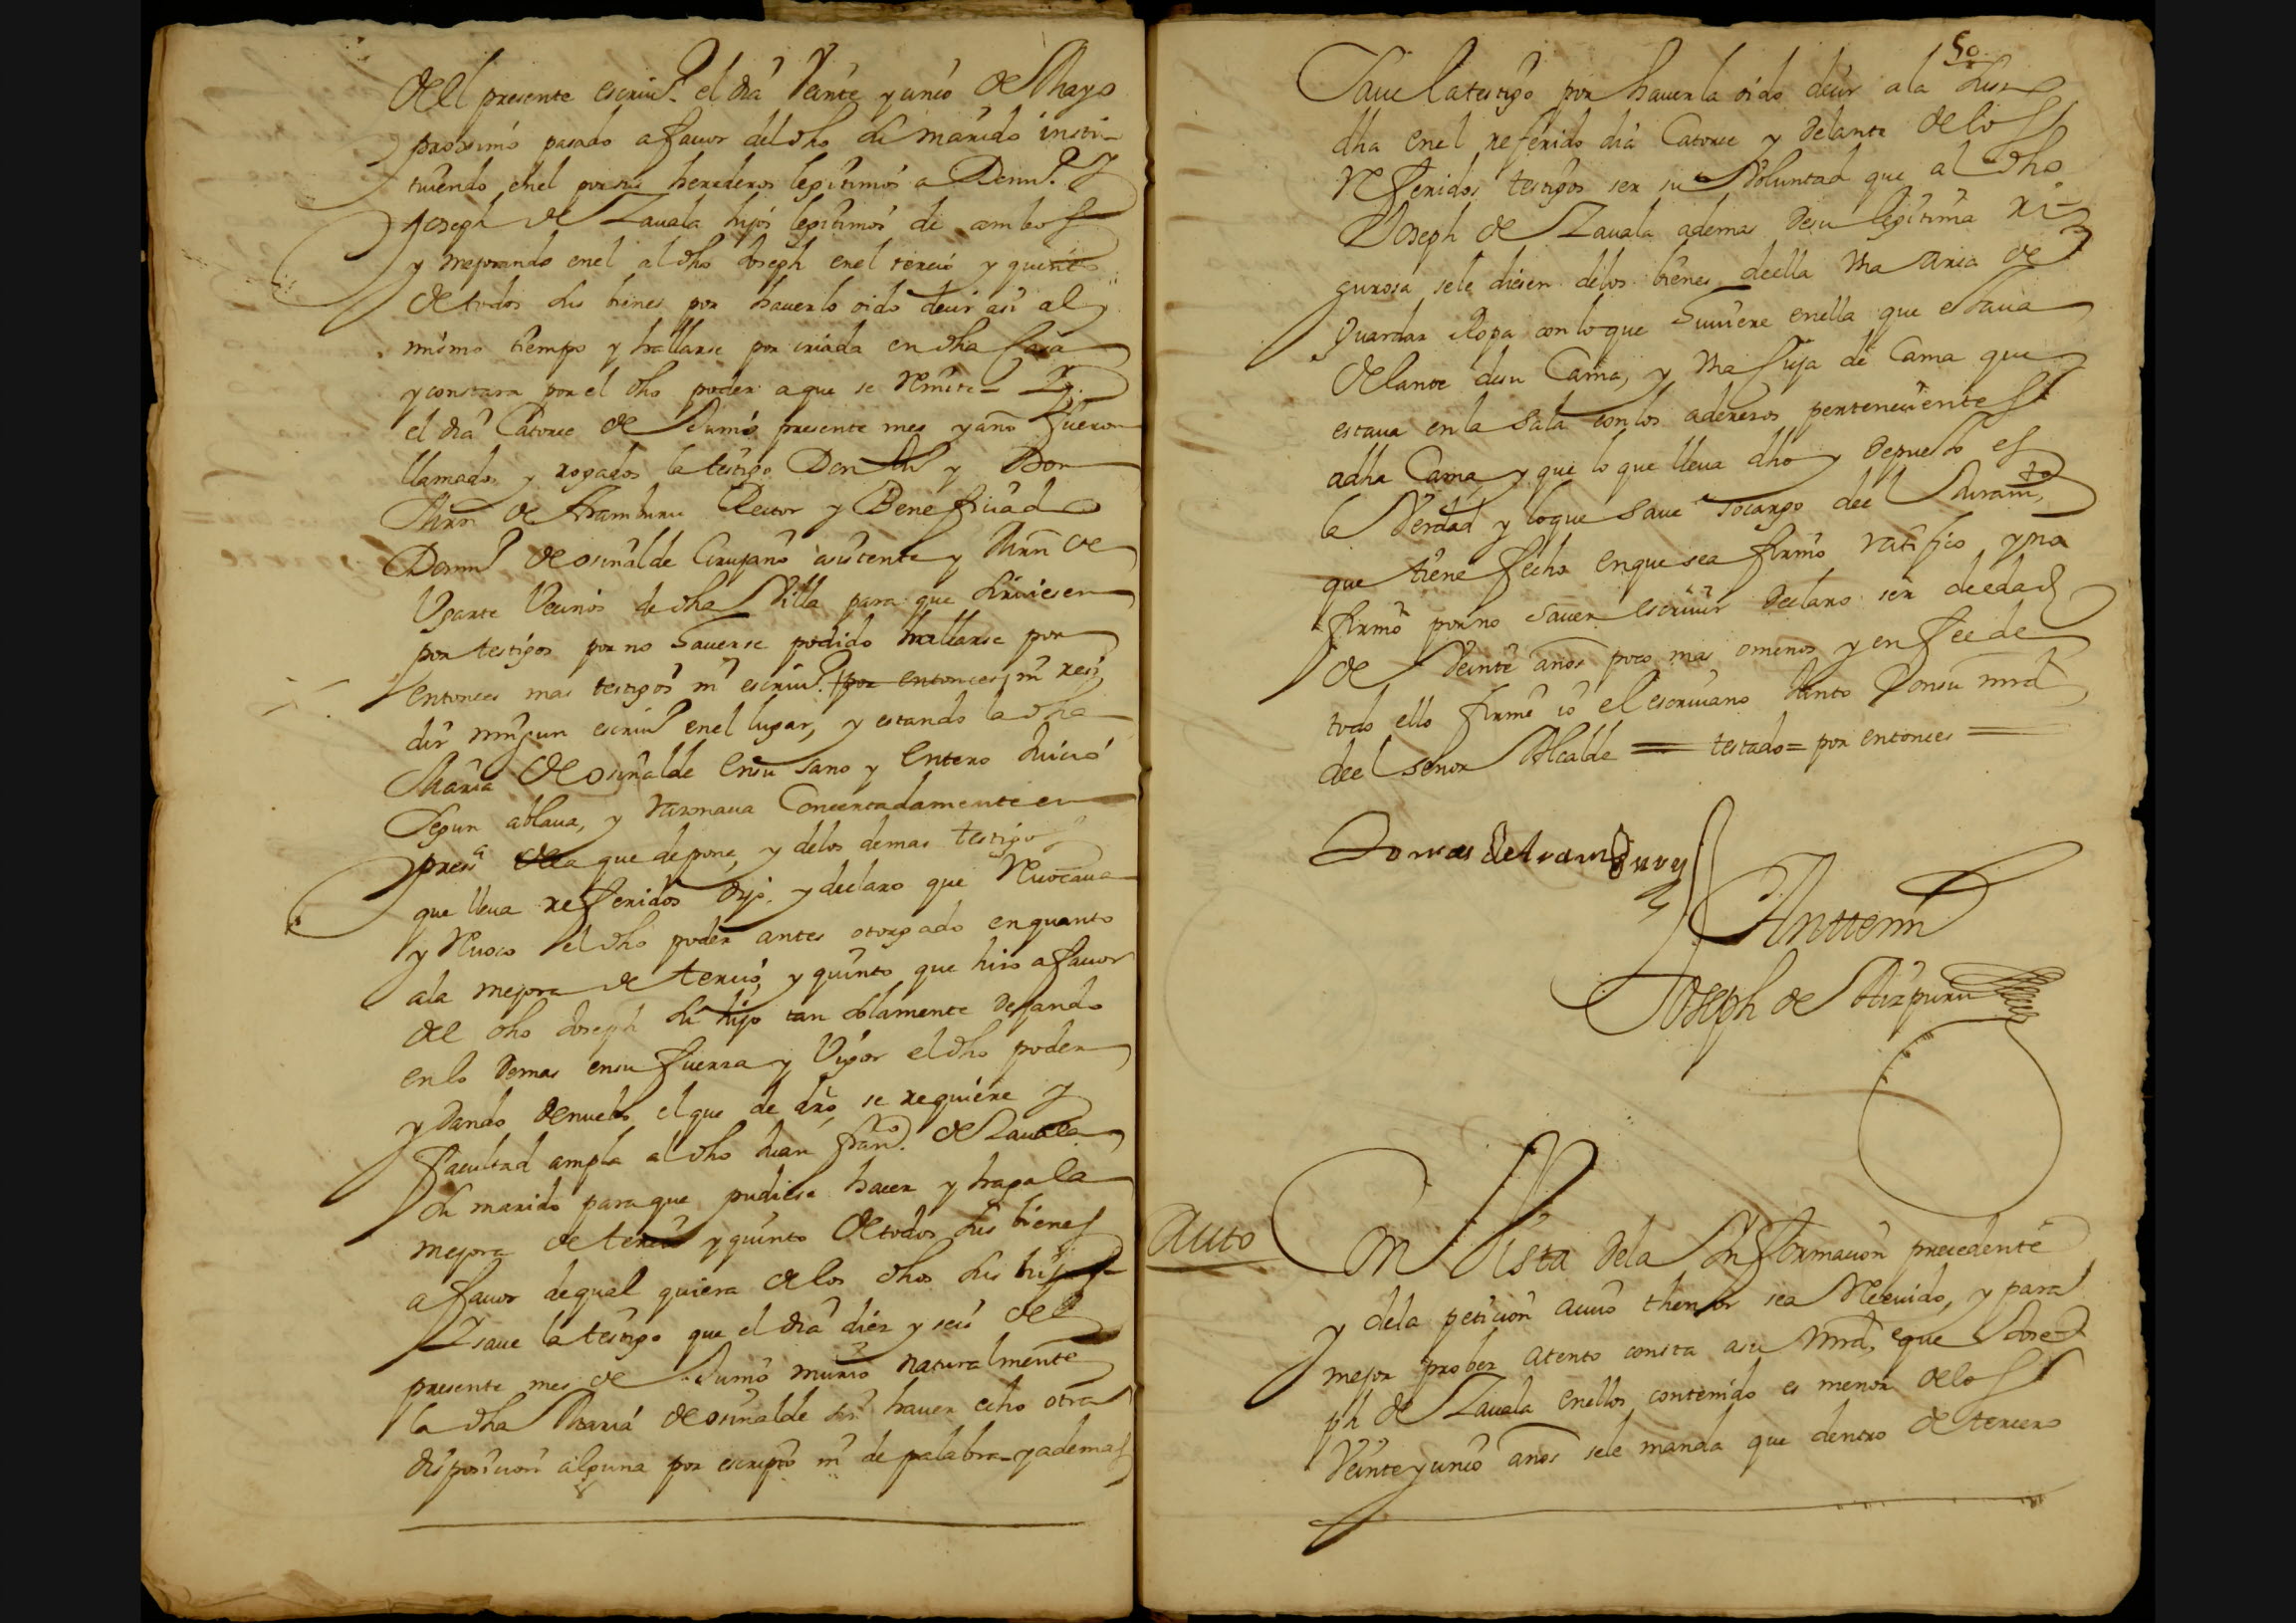 del presente escriuº el dia Veinte y cinco de Mayo
proximo pasado a fauor del dho su marido insti-
tuiendo en el por sus herederos legitimos a Domº y
Joseph de Zauala hijos legitimos de ambos
y mejorando en el al dho Joseph en el tercio y quinto
de todos sus bines por hauerlo oido decir asi al
mismo tiempo y hallarse por criada en dha Casa
y constara por el dho poder a que se Remite – Y
el dia Catorce de Junio presente mes y año fueron
llamados y rogados la testigo Don y Don
Mrn de Aramburu Rector y Beneficiado
Domº de osinalde Cirujano asistente y Mrn de
Ugarte Vecinos de dha Villa para que siruiesen
por testigos por no hauerse podido hallarse por
entonces mas testigos ni escriuº por entonces ni resi
dir ningun escriuº en el lugar, y estando la dha
Maria de osinalde en su sano y entero Juicio
segun ablaua, y razonaua Concertadamente en
presª de la que depone, y delos demas testigos
que lleua referidos dijo, y declaro que Reuocaua
y Reuoco el dho poder antes otorgado en quanto
ala mejora de tercio, y quinto que hizo a fauor
del dho Joseph su hijo tan solamente dejando
en lo demas en su fuerza y Vigor el dho poder
y dando de nuebo el que de drõ se requiere y
facultad ampla al dho Juan franº de Zauala
su marido para que pudiese hacer y haga la
mejora de tercio y quinto de todos sus bienes
a fauor de qual quiera de los dhos sus hijos
Y saue la testigo que el dia diez y seis del
presente mes de Junio murio naturalmente
la dha Maria de osinalde sin hauer echo otra
disposicion alguna por escripto ni de palabra – y ademas
50
Saue la testigo por hauerla oido decir a la susso
dha en el referido dia Catorce y delante de los
Referidos testigos ser su Voluntad que al dho
Joseph de Zauala ademas de su legitima ri-
gurosa se le diesen de los bienes de ella Vna arca de
guardar Ropa con lo que huuiere en ella que estaua
delante de su Cama, y Vna Cuja de Cama que
estaua en la Sala con los aderezos pertenecientes
a dha Cama y que lo que lleua dho y depuesto es
la Verdad y lo que Saue so cargo del Juramto
que tiene fecho en que se a firmo ratifico y no
firmo por no sauer escriuir Declaro ser de edad
de Veinte años poco mas o menos y en fee de
todo ello firme io el escriuano Junto Con su mrd
del señor Alcalde = testado = por entonces =
Tomas de Aramburu
Ante mi
Joseph de Aizpuru
Auto
En Vista de la Informacion precedente
y de la peticion a cuio thenor sea Recuido, y para
mejor prober Atento consta a su Mrd, que Jose-
ph de Zauala en ellos contenido es menor de los
Veinte y cinco años se le manda que dentro de tercero